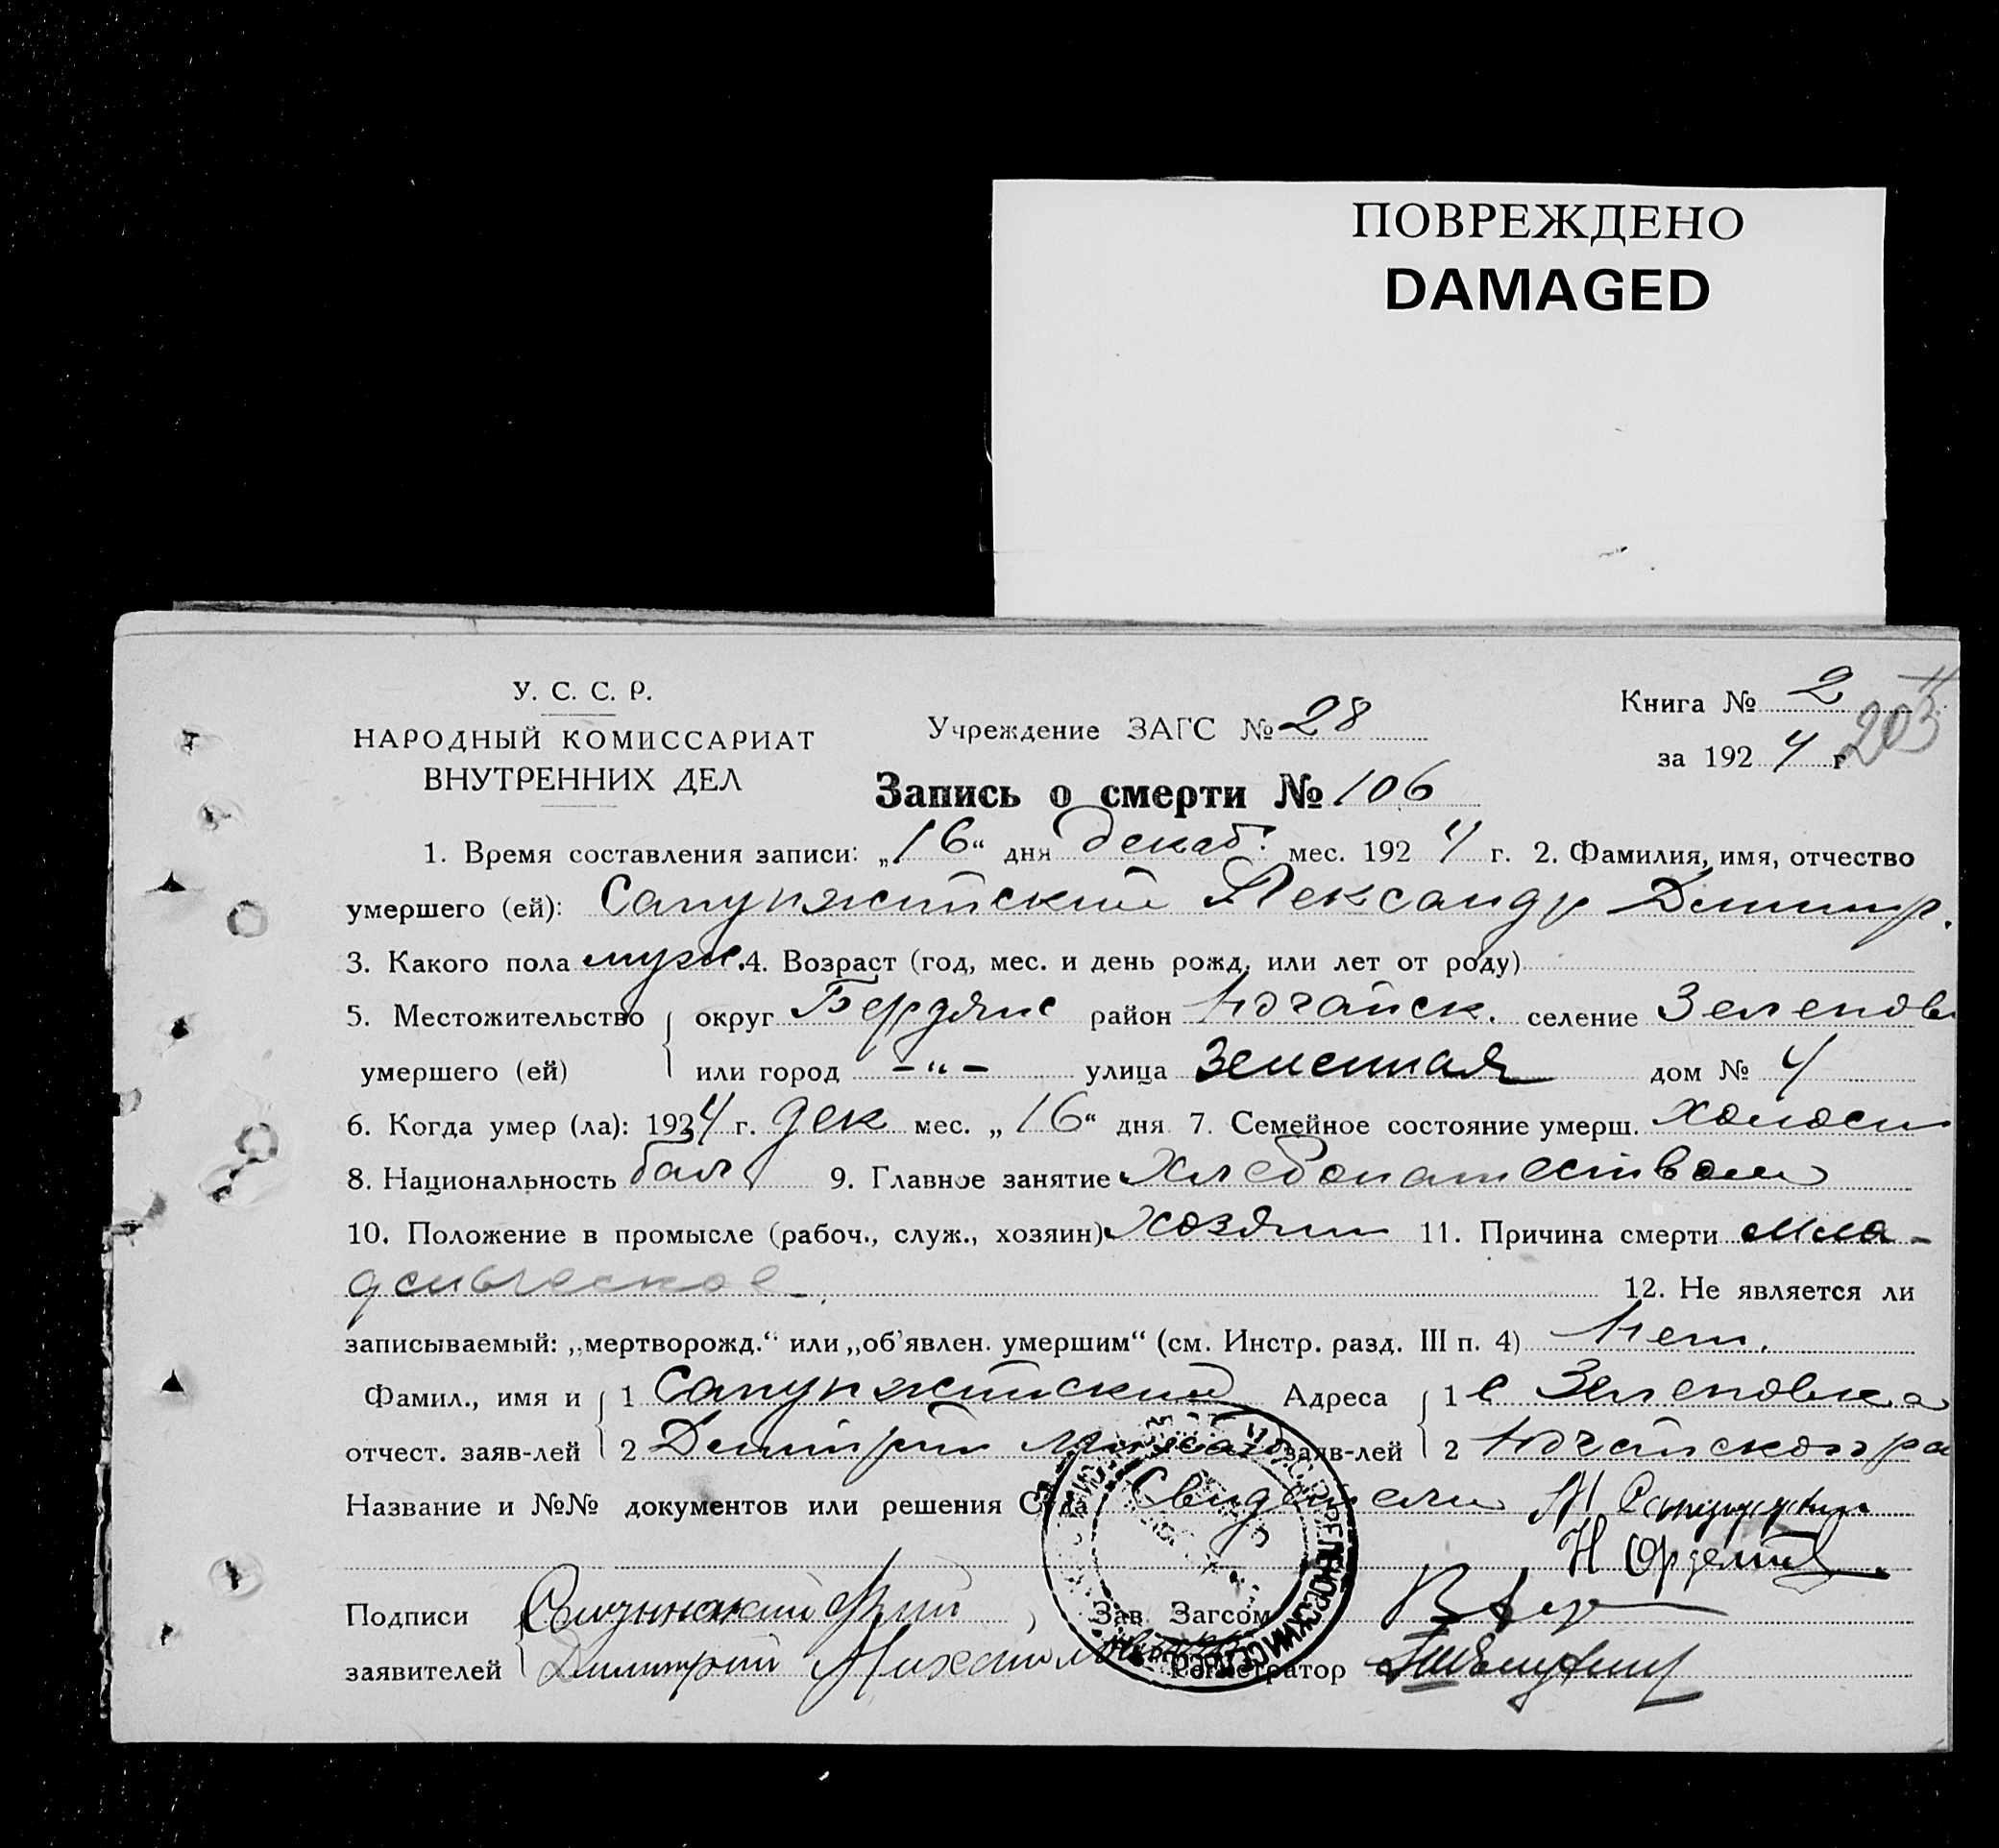 ПОВРЕЖДЕНО
DAMAGED
У. С. С. Р.
НАРОДНЫЙ КОМИССАРИАТ
ВНУТРЕННИХ ДЕЛ
Учреждение ЗАГС № 28
Книга № 2
за 1924 г. 203
Запись о смерти № 106
1. Время составления записи: „16“ дня декаб. мес. 1924 г. 2. Фамилия, имя, отчество
умершего (ей): Сапунжийский Александр Димитр.
3. Какого пола муж. 4. Возраст (год, мес. и день рожд. или лет от роду)
5. Местожительство округ Бердянс район Ногайск. селение Зеленовк
умершего (ей) или город -„- улица дом № 4
6. Когда умер (ла): 1924 г. дек мес. „16“ дня 7. Семейное состояние умерш. холост
8. Национальность болг 9. Главное занятие Хлебопашеством
10. Положение в промысле (рабоч., служ., хозяин) Хозяин 11. Причина смерти мла-
денческое 12. Не является ли
записываемый: „мертворожд.“ или „об'явлен. умершим“ (см. Инстр. разд. III п. 4) Нет.
Фамил., имя и 1 Сапунжийский Адреса 1 с Зеленовка
отчест. заяв-лей 2 Димитрий Михайл заяв-лей 2 Ногайского ра
Название и №№ документов или решения Суда Свидетели
Подписи Зав. Загсом
заявителей Димитрий Михайлович Регистратор